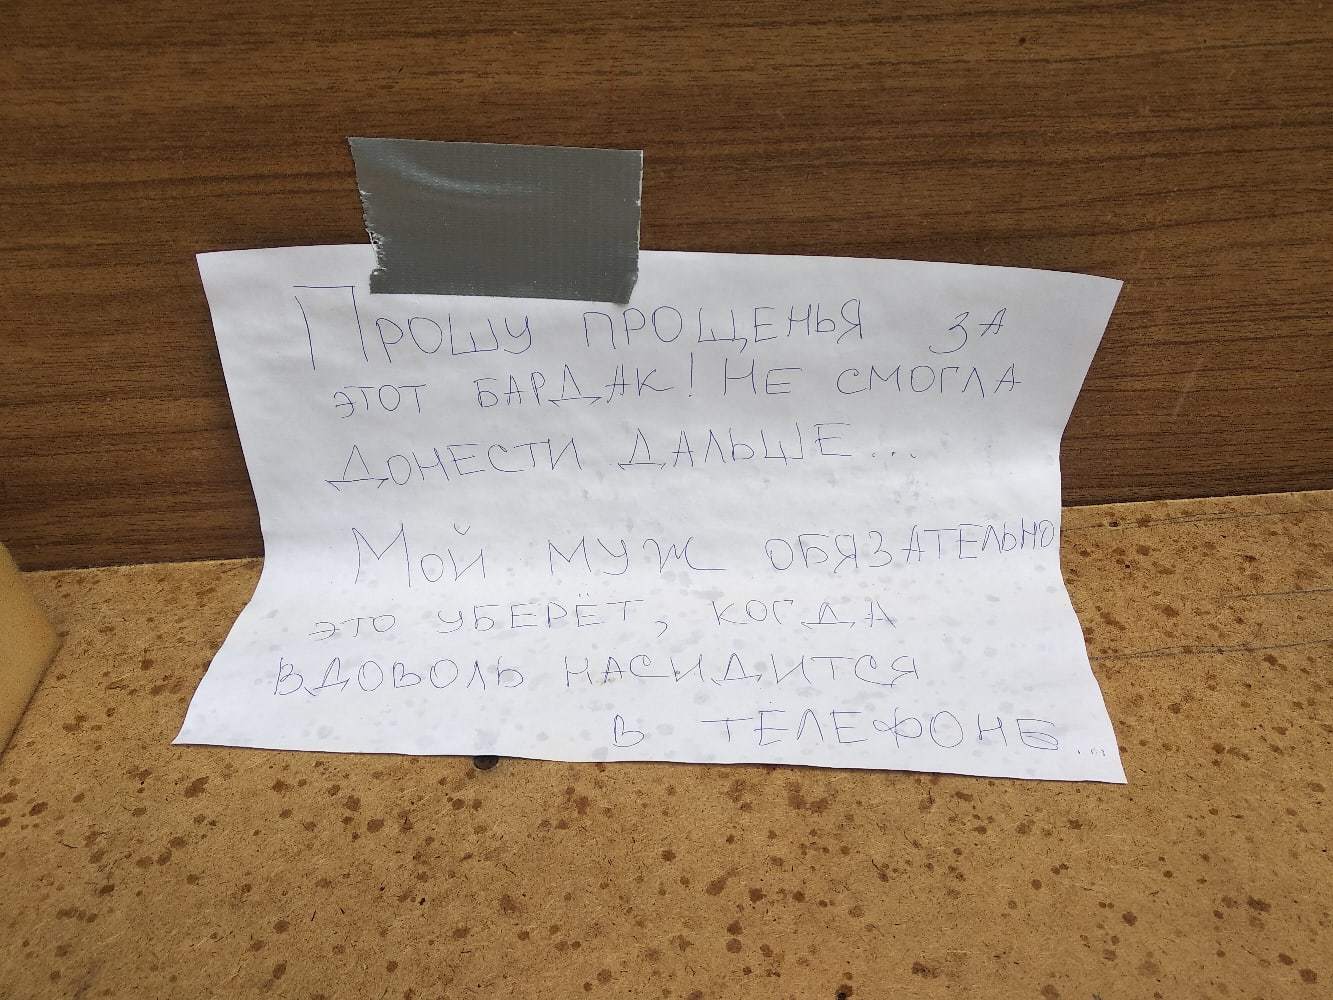 Прошу прощенья за
этот бардак! Не смогла
донести дальше...
Мой муж обязательно
это уберёт, когда
вдоволь насидится
в телефоне...